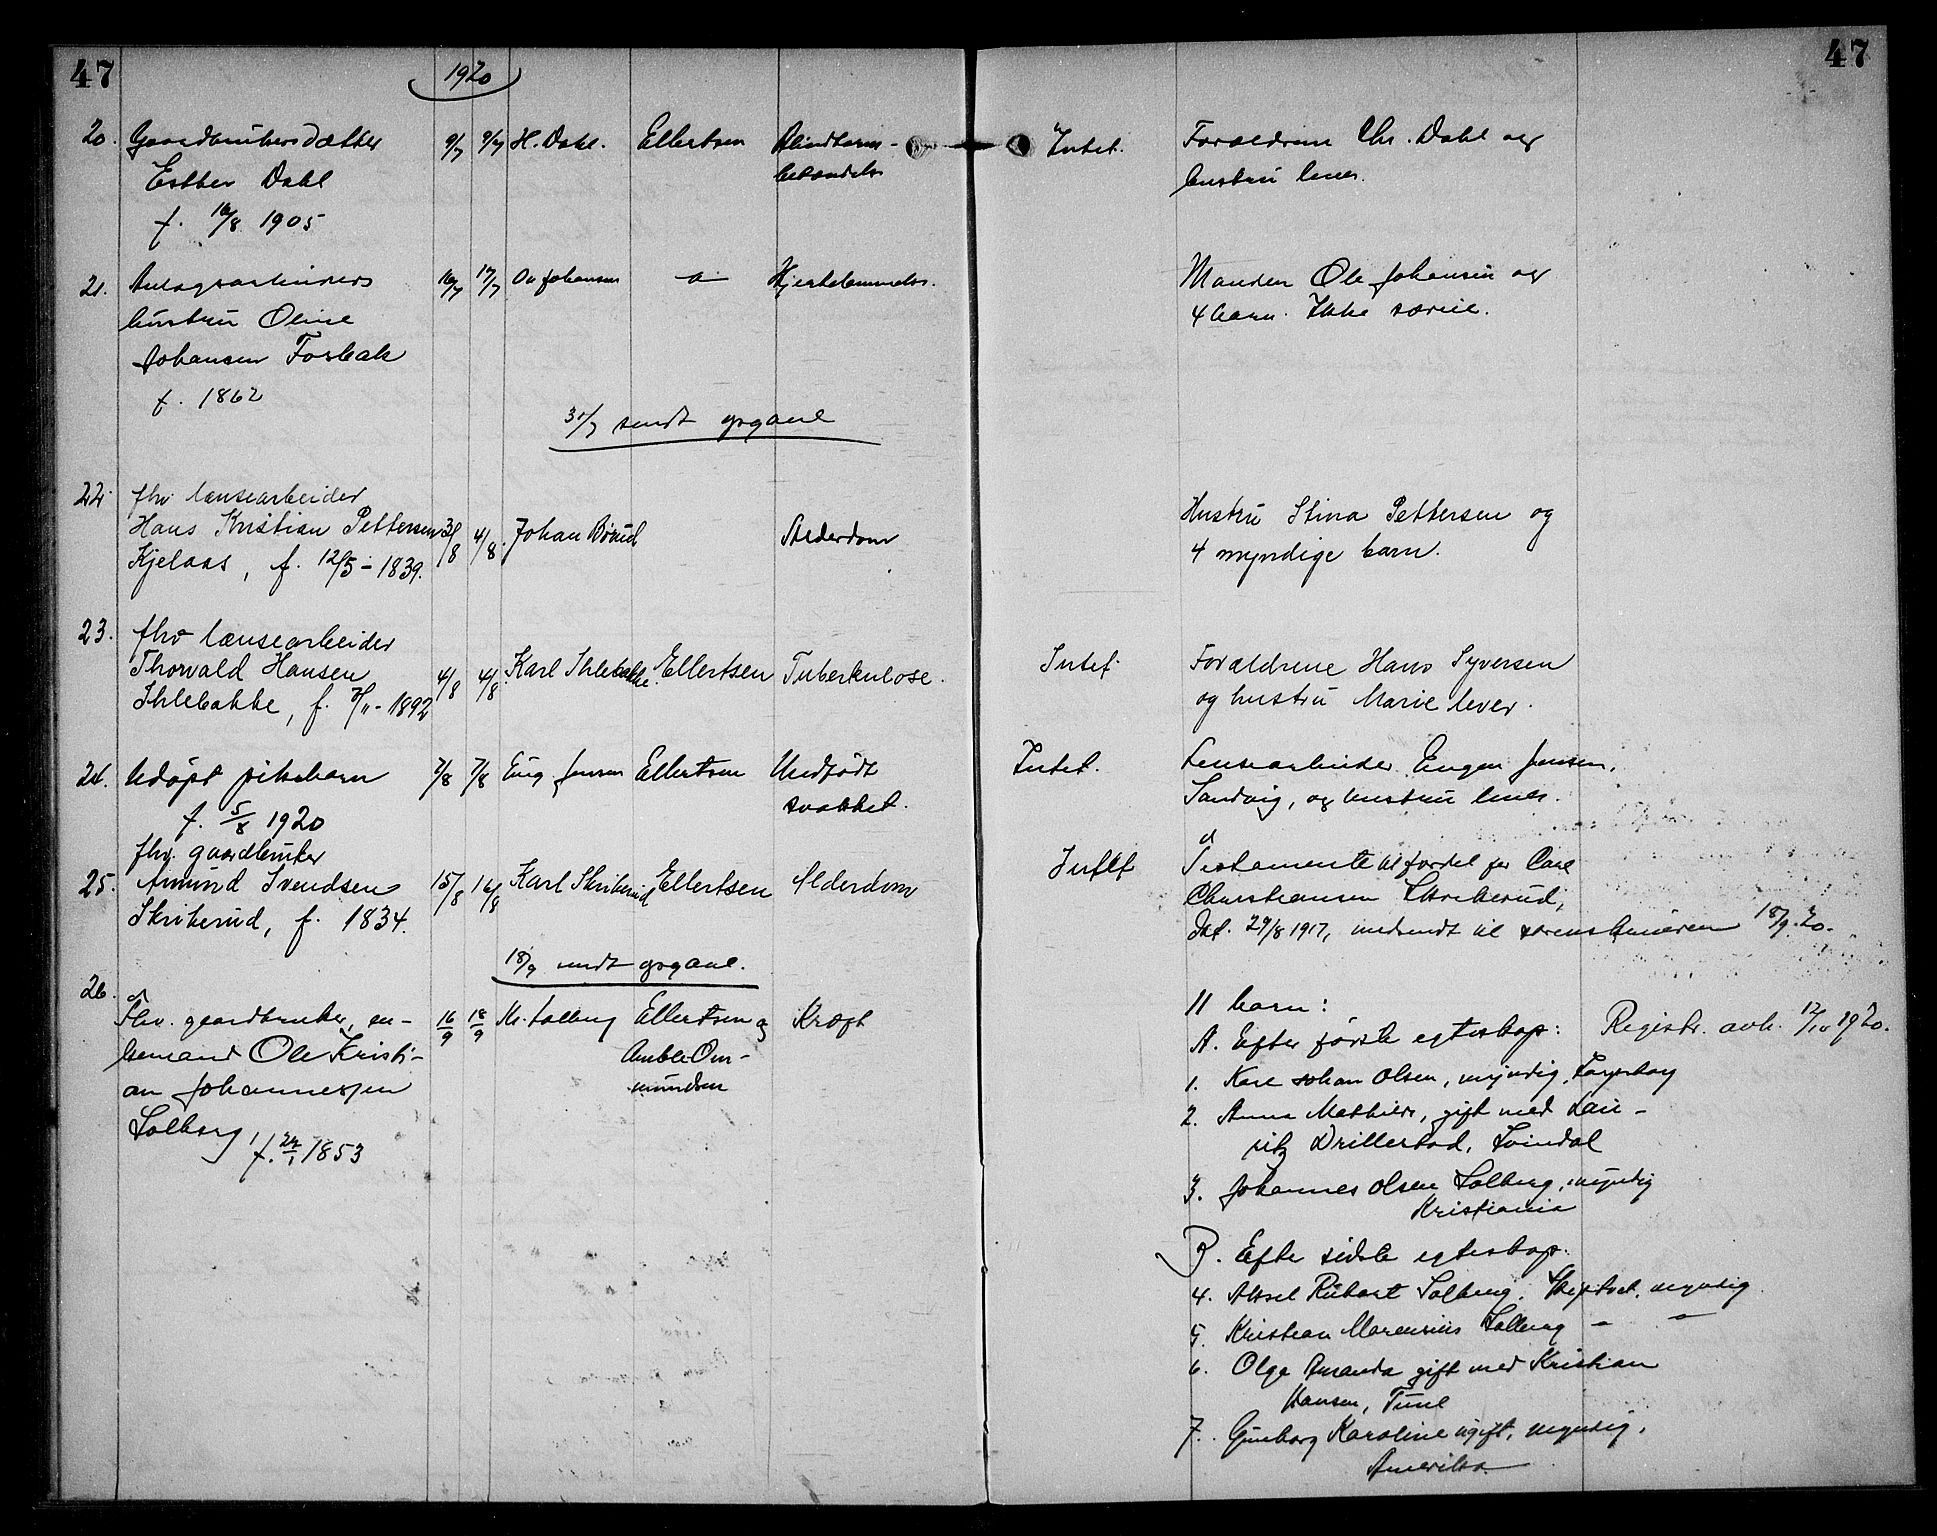 47
1920
47
20. Gaardbrukersdatter 9/7 9/7 H. Dahl. Ellertsen Blindtarm-
Esther Dahl betændelse
f. 16/8 1905
Intet. Forældrene Chr. Dahl og
hustru lever.
21. Anlægsarbeiders 16/7 17/7 Ole Johansen -"- Hjertelammelse.
hustru Oline
Johansen Forbak
f. 1862
Manden Ole Johansen og
4 barn. Ikke særeie.
31/7 sendt opgave
22. fhv. lænsearbeider
Hans Kristian Pettersen 3/8 4/8. Johan Børud Alderdom
Kjelaas, f. 12/5 - 1839.
Hustru Stina Pettersen og
4 myndige barn.
23. fhv lænsearbeider
Thorvald Hansen 4/8 4/8 Karl Ihlebakke. Ellertsen Tuberkulose.
Ihlebakke, f. 7/11 - 1892
Intet. Forældrene Hans Syversen
og hustru Marie lever.
24. Udøpt pikebarn 7/8 7/8 Eug. Jensen Ellertsen Medfødt
f. 5/8 1920 svakhet.
Intet. Lensearbeider Eugen Jensen,
Sandvig, og hustru lever.
fhv. gaardbruker
25. Amund Svendsen 15/8 16/8 Karl Skriberud Ellertsen Alderdom
Skriberud, f. 1834.
Intet Testamente til fordel for Carl
Christiansen Skriberud,
Dat. 29/8 1917, indsendt til sorenskriveren 18/9. 20.
18/9 sendt opgave.
26. Fhv. gaardbruker, en- 16/9 18/9 Kr. Solberg Ellertsen og Kræft
kemand Ole Kristi- Amble Om-
an Johannessen mundsen
Solberg,
f. 24/1 1853
11 barn:
A. Efter første egteskap: Registr. avh. 12/10 1920.
1. Karl Johan Olsen, myndig,
2. Anna Mathilde, gift med Lau-
ritz Drillestad, Svindal
3. Johannes Olsen Solberg, myndig
Kristiania
B. Efter sidste egteskap.
4. Aksel Robert Solberg, Skiptvet, myndig
5. Kristian Marensius Solberg - -
6. Olga Amanda gift med Kristian
Hansen, Tune
7. Gunborg Karoline ugift, myndig,
Amerika